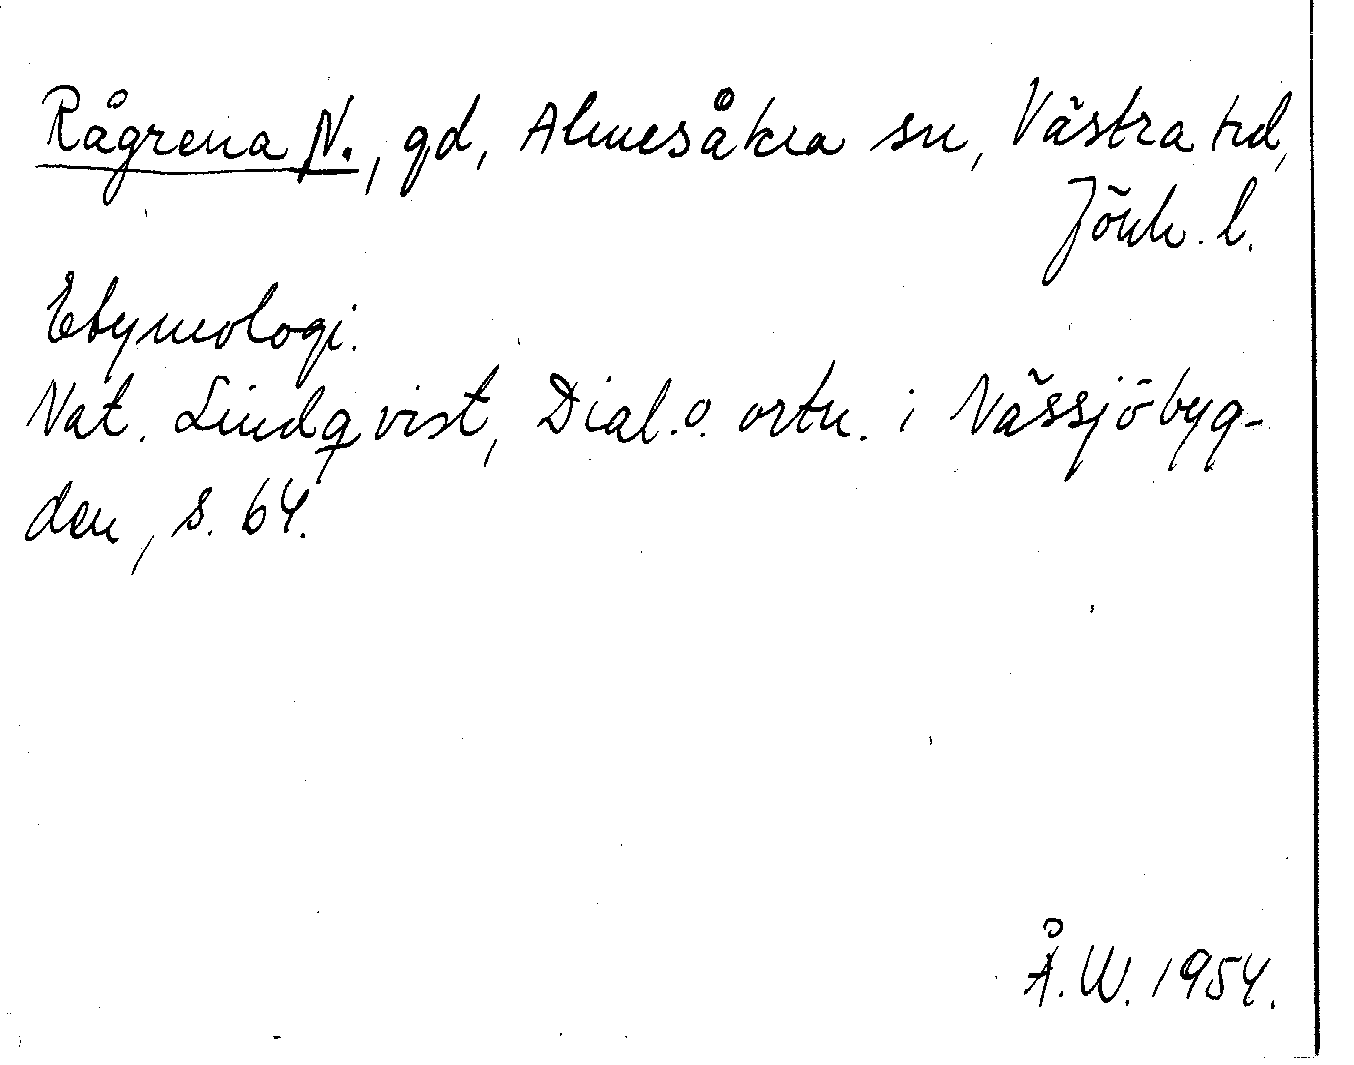 Rågrena N., gd, Almesåkra sn, Västra hd,
Jönk. l.
Etymologi.
Nat. Lindqvist, Dial. o. ortn. i Nässjöbyg-
den, s. 64.
Å.W. 1954.